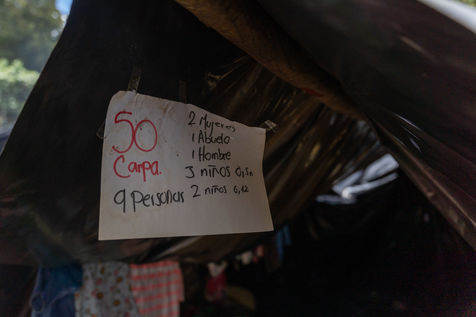 50
Carpa.
9 Personas
2 Mujeres
1 Abuela
1 Hombre
3 niños 0,5n
2 niños 6,12